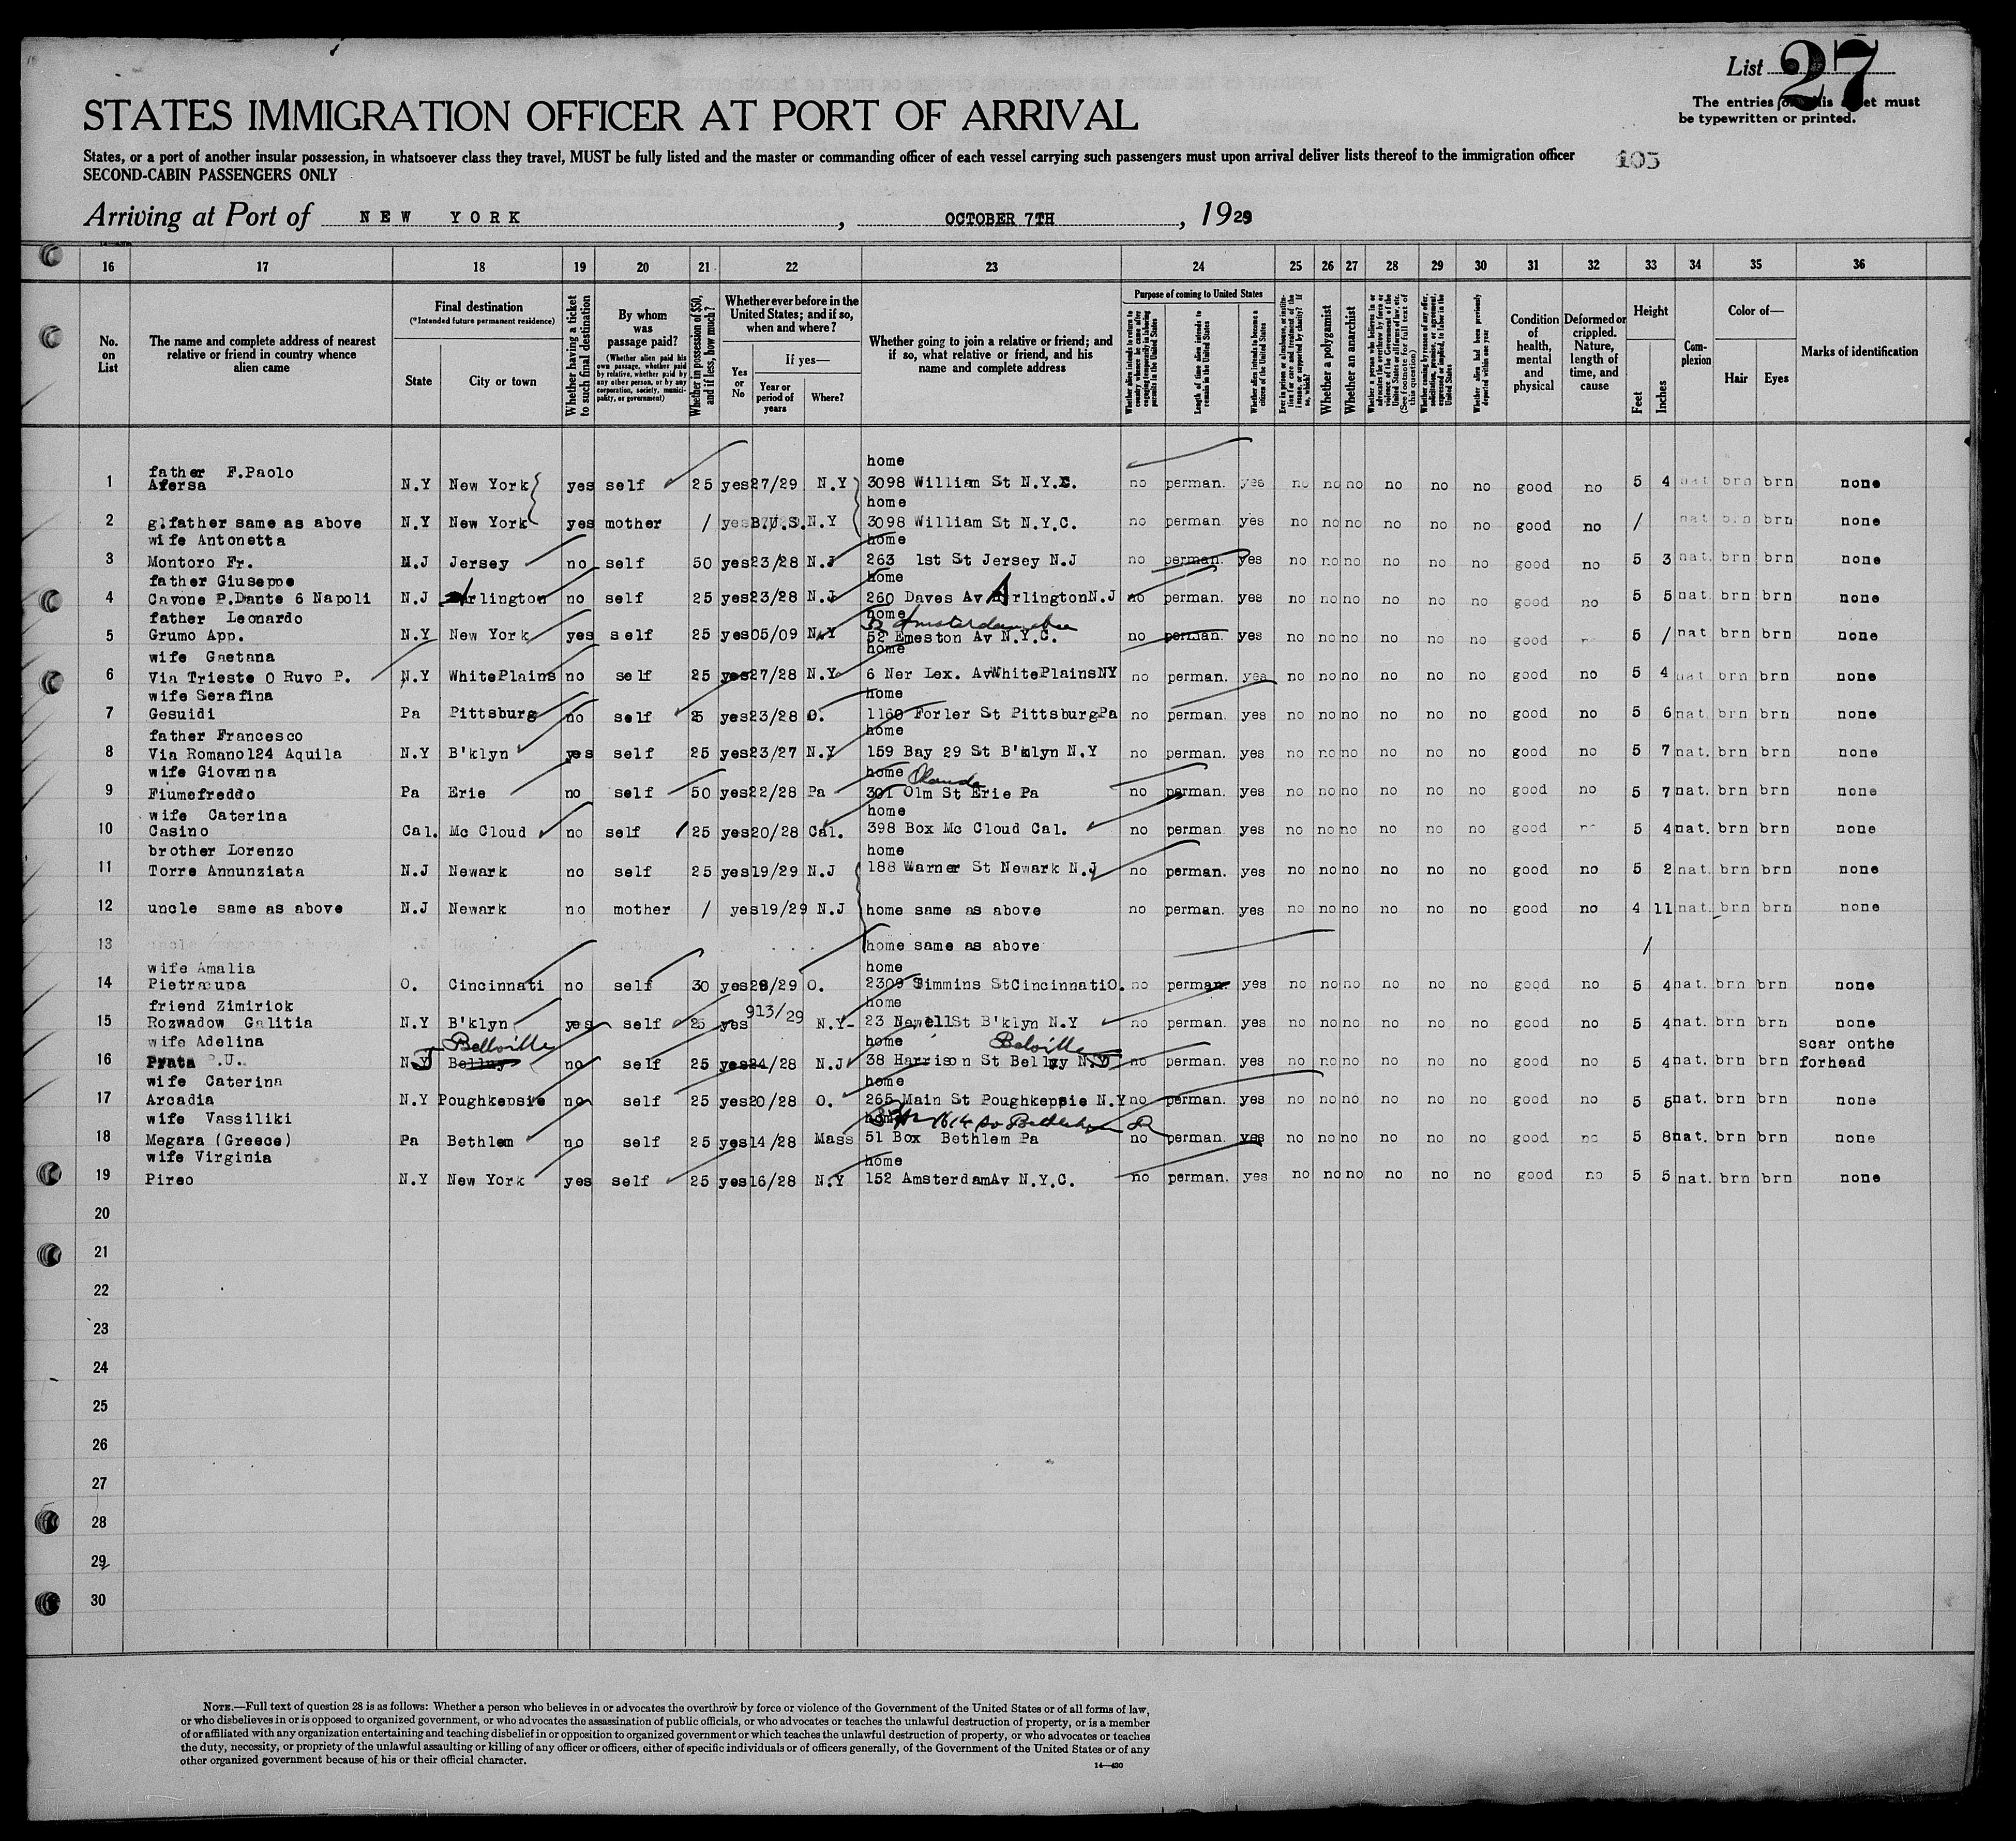 List 27
The entries on this sheet must
be typewritten or printed.
STATES IMMIGRATION OFFICER AT PORT OF ARRIVAL
States, or a port of another insular possession, in whatsoever class they travel, MUST be fully listed and the master or commanding officer of each vessel carrying such passengers must upon arrival deliver lists thereof to the immigration officer
105
SECOND-CABIN PASSENGERS ONLY
Arriving at Port of NEW YORK, OCTOBER 7TH, 1929
16 17 18 19 20 21 22 23 24 25 26 27 28 29 30 31 32 33 34 35 36
No. on List
The name and complete address of nearest relative or friend in country whence alien came
Final destination
(*Intended future permanent residence)
State
City or town
Whether having a ticket to such final destination
By whom was passage paid?
(Whether alien paid his own passage, whether paid by relative, whether paid by any other person, or by any corporation, society, municipality, or government)
Whether in possession of $50, and if less, how much?
Whether ever before in the United States; and if so, when and where?
Yes or No
If yes—
Year or period of years
Where?
Whether going to join a relative or friend; and if so, what relative or friend, and his name and complete address
Purpose of coming to United States
Whether alien intends to return to country whence he came after engaging temporarily in laboring pursuits in the United States
Length of time alien intends to remain in the United States
Whether alien intends to become a citizen of the United States
Ever in prison or almshouse, or institution for care and treatment of the insane, or supported by charity? If so, which?
Whether a polygamist
Whether an anarchist
Whether a person who believes in or advocates the overthrow by force or violence of the Government of the United States or all forms of law, etc. (See footnote for full text of this question)
Whether coming by reason of any offer, solicitation, promise, or agreement, expressed or implied, to labor in the United States
Whether alien had been previously deported within one year
Condition of health, mental and physical
Deformed or crippled. Nature, length of time, and cause
Height
Feet
Inches
Complexion
Color of—
Hair
Eyes
Marks of identification
father F.Paolo home
1 Afersa N.Y New York yes self 25 yes 27/29 N.Y 3098 William St N.Y.C. no perman. yes no no no no no no good no 5 4 nat brn brn none
home
2 glfather same as above N.Y New York yes mother / yes B.U.S. N.Y 3098 William St N.Y.C. no perman yes no no no no no no good no / nat brn brn none
wife Antonetta home
3 Montoro Fr. N.J Jersey no self 50 yes 23/28 N.J 263 1st St Jersey N.J no perman. yes no no no no no no good no 5 3 nat. brn brn none
father Giuseppe home
4 Cavone P.Dante 6 Napoli N.J Arlington no self 25 yes 23/28 N.J 260 Daves Av Arlington N.J no perman. yes no no no no no no good no 5 5 nat. brn brn none
father Leonardo home
52 Amsterdam Ave
5 Grumo App. N.Y New York yes self 25 yes 05/09 N.Y 52 Emeston Av N.Y.C. no perman. yes no no no no no no good 5 / nat brn brn none
wife Gaetana home
6 Via Trieste O Ruvo P. N.Y WhitePlains no self 25 yes 27/28 N.Y. 6 Ner Lex. AvWhitePlainsNY no perman. yes no no no no no no good no 5 4 nat brn brn none
wife Serafina home
7 Gesuidi Pa Pittsburg no self 25 yes 23/28 O. 1160 Forler St PittsburgPa no perman. yes no no no no no no good no 5 6 nat. brn brn none
father Francesco home
8 Via Romano124 Aquila N.Y B'klyn yes self 25 yes 23/27 N.Y 159 Bay 29 St B'klyn N.Y no perman. yes no no no no no no good no 5 7 nat. brn brn none
wife Giovanna home
9 Fiumefreddo Pa Erie no self 50 yes 22/28 Pa 301 Olm St Erie Pa no perman. yes no no no no no no good no 5 7 nat. brn brn none
wife Caterina home
10 Casino Cal. Mc Cloud no self 25 yes 20/28 Cal. 398 Box Mc Cloud Cal. no perman yes no no no no no no good 5 4 nat. brn brn none
brother Lorenzo home
11 Torre Annunziata N.J Newark no self 25 yes 19/29 N.J 188 Warner St Newark N.J no perman. yes no no no no no no good no 5 2 nat. brn brn none
12 uncle same as above N.J Newark no mother / yes 19/29 N.J home same as above no perman. yes no no no no no no good no 4 11 nat. brn brn none
13 home same as above /
wife Amalia home
14 Pietracupa O. Cincinnati no self 30 yes 28/29 O. 2309 Simmins StCincinnatiO. no perman. yes no no no no no no good no 5 4 nat. brn brn none
friend Zimiriok home
15 Rozwadow Galitia N.Y B'klyn yes self 25 yes 913/29 N.Y- 23 NewellSt B'klyn N.Y no perman. yes no no no no no no good no 5 4 nat. brn brn none
wife Adelina Bellville home Belville scar onthe
16 Prata P.U. N.J Belluy no self 25 yes 24/28 N.J 38 Harrison St Belluy N.J no perman. yes no no no no no no good no 5 4 nat. brn brn forhead
wife Caterina home
17 Arcadia N.Y Poughkepsie no self 25 yes 20/28 O. 265 Main St Poughkeppie N.Y no perman. yes no no no no no no good no 5 5 nat. brn brn none
wife Vassiliki home 1614 So Bethlehem
18 Megara (Greece) Pa Bethlem no self 25 yes 14/28 Mass 51 Box Bethlem Pa no perman. yes no no no no no no good no 5 8 nat. brn brn none
wife Virginia home
19 Pireo N.Y New York yes self 25 yes 16/28 N.Y 152 AmsterdamAv N.Y.C. no perman. yes no no no no no no good no 5 5 nat. brn brn none
20
21
22
23
24
25
26
27
28
29
30
NOTE.—Full text of question 28 is as follows: Whether a person who believes in or advocates the overthrow by force or violence of the Government of the United States or of all forms of law,
or who disbelieves in or is opposed to organized government, or who advocates the assassination of public officials, or who advocates or teaches the unlawful destruction of property, or is a member
of or affiliated with any organization entertaining and teaching disbelief in or opposition to organized government or which teaches the unlawful destruction of property, or who advocates or teaches
the duty, necessity, or propriety of the unlawful assaulting or killing of any officer or officers, either of specific individuals or of officers generally, of the Government of the United States or of any
other organized government because of his or their official character.
14—430